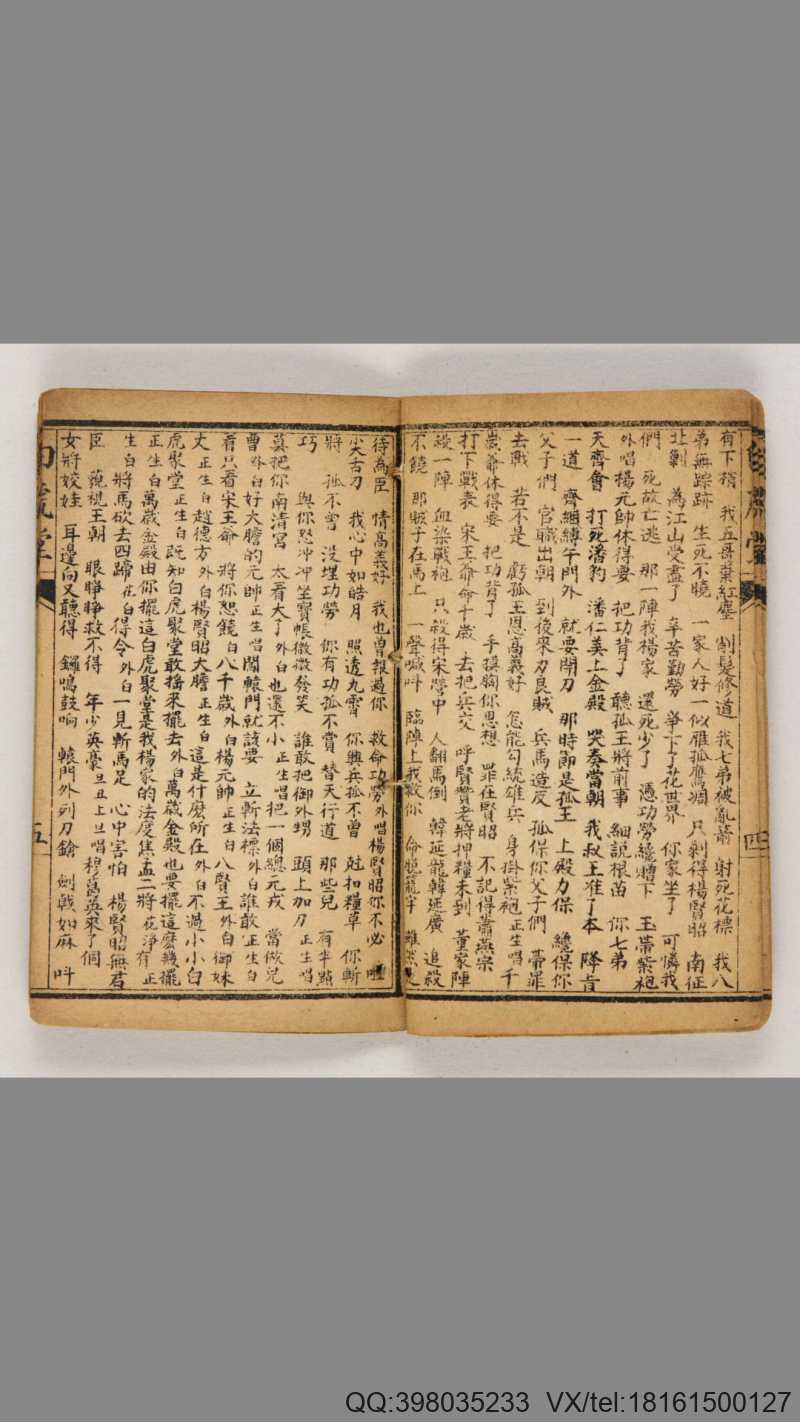 有下稍 我五哥棄紅塵 削髮修道 我七弟被亂箭 射死花標 我八
弟無踪跡 生死不曉 一家人好一似雁孤鷹凋 只剩得楊賢昭 南征
北剿 為江山受盡了 辛苦勤勞 爭下了花世界 你家坐了 可憐我
們 死故亡逃 那一陣我楊家 還死少了 憑功勞纔贈下 玉帶紫袍
外唱楊元帥休得要 把功背了 聽孤王將前事 細說根苗 你七弟
天齊會 打死潘豹 潘仁美上金殿 哭奏當朝 我叔王准了本 降旨
一道 齊綑縛午門外 就要開刀 那時節是孤王 上殿力保 纔保你
父子們 官職出朝 到後來刃良賊 兵馬造反 孤保你父子們 帶罪
去戰 若不是 虧孤王恩高義好 怎能勾統雄兵 身掛紫袍正生唱千
歲爺休得要 把功背了 手摸胸你思想 罪在賢昭 不記得蕭燕宗
打下戰表 宋王爺命千歲 去把兵交 呼賢賫老將押糧未到 董家陣
殺一陣 血染戰袍 只殺得宋營中 人翻馬倒 韓延龍韓延廣 追殺
不饒 那賊子在馬上 一聲喊叫 臨陣上我救你 命脫籠牢
待為臣 情高義好 我也曾報過你 救命功勞外唱楊賢昭你不必
尖舌刃 我心中如皓月 照透九霄 你興兵孤不曾 尅扣糧草 你斬
將 孤不曾 沒埋功勞 你有功孤不賞 替天行道 那些兒 有半點
巧 與你怒冲冲坐寶帳微微發笑 誰敢把御外甥 頭上加刃正生唱
莫把你南清宮 太看大了外白也還不小正生唱把一個總元戎 當做兒
曹外白好大膽的元帥正生唱鬧轅門就該要 立斬法標外白誰敢正生白
看只看宋王爺 將你恕饒白八千歲外白楊元帥正生白八賢王外白御妹
丈正生白趙德方外白楊賢昭大膽正生白這是什麽所在外白不過小小白
虎聚堂正生白既知白虎聚堂敢搖來擺去外白萬歲金殿也要擺這麽幾擺
正生白萬歲金殿由你擺這白虎聚堂是我楊家的法度焦孟二將花淨有正
生白將馬砍去四蹄花白得令外白一見斬馬足 心中害怕 楊賢昭無君
臣 藐視王朝 眼睜睜救不得 年少英豪旦丑上旦唱穆萬英來了個
女將姣娃 耳邊向又聽得 鑼鳴鼓响 轅門外列刀鎗 劍戟如麻 叫
四
五
QQ:398035233 VX/tel:18161500127